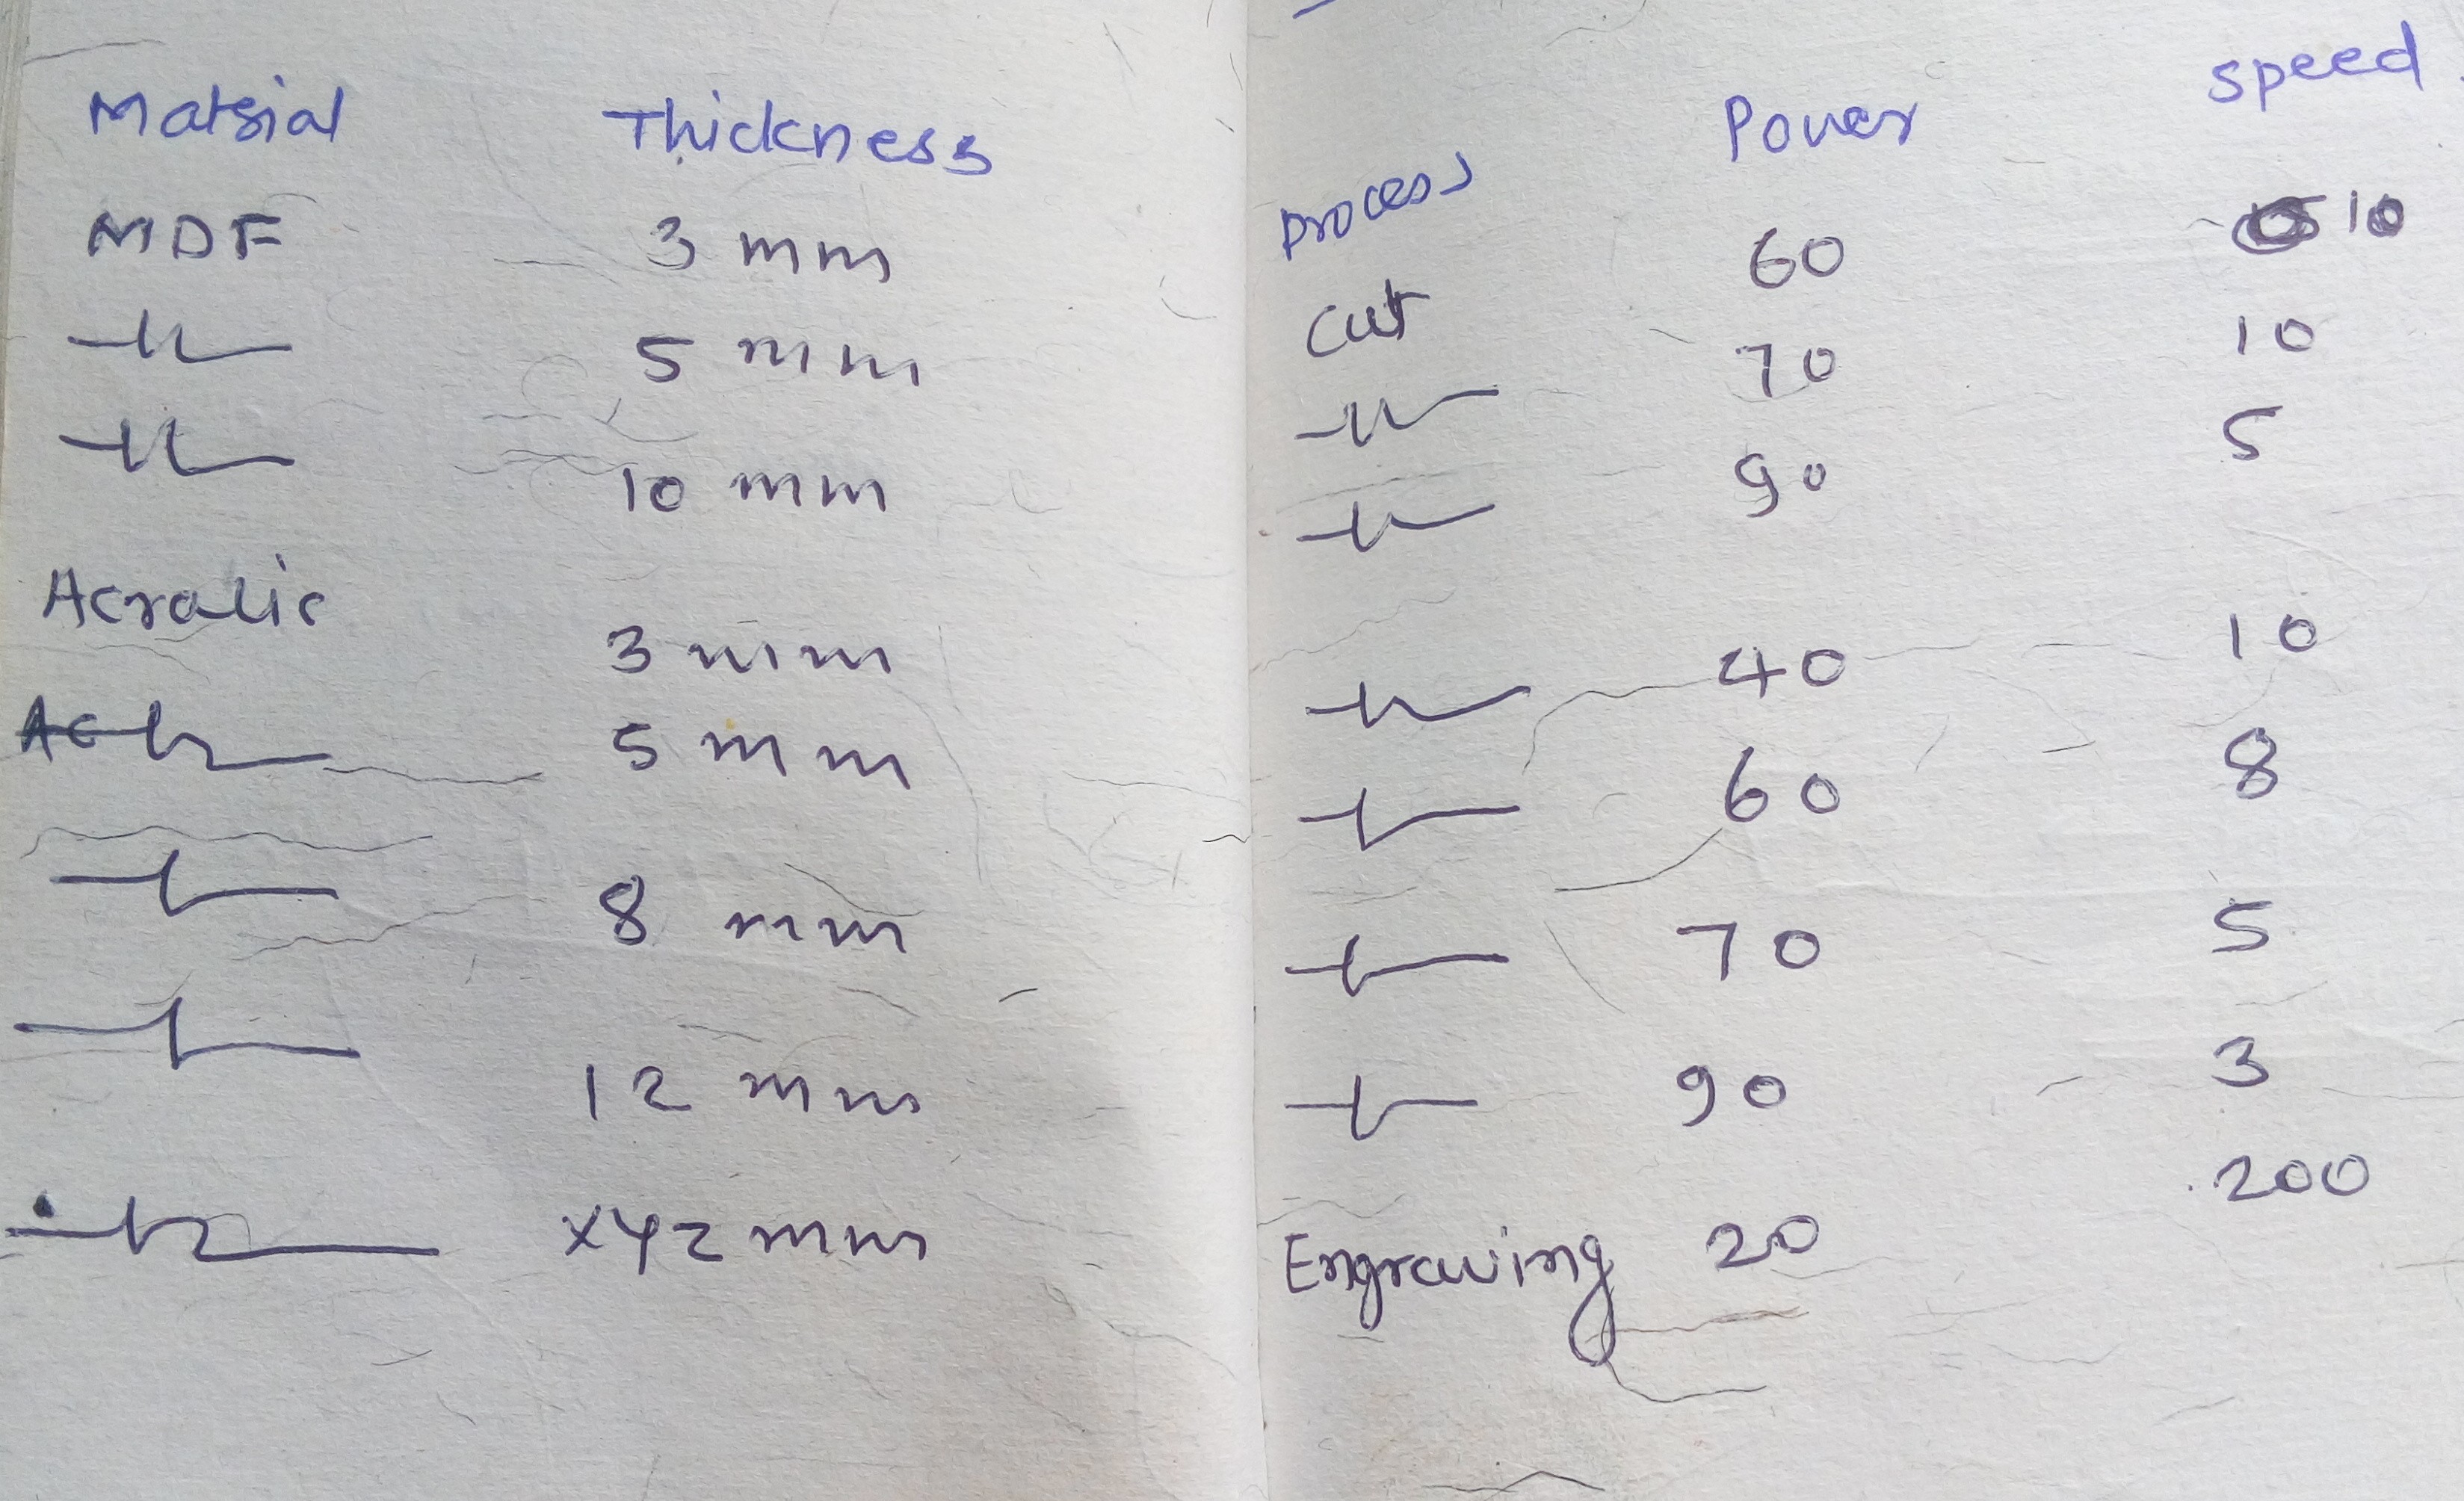 Matrial Thickness Process Power Speed
MDF 3 mm Cut 60 10
-〃- 5 mm -〃- 70 10
-〃- 10 mm -〃- 90 5
Acralic 3 mm -〃- 40 10
-〃- 5 mm -〃- 60 8
-〃- 8 mm -〃- 70 5
-〃- 12 mm -〃- 90 3
-〃- mm Engraving 20 200